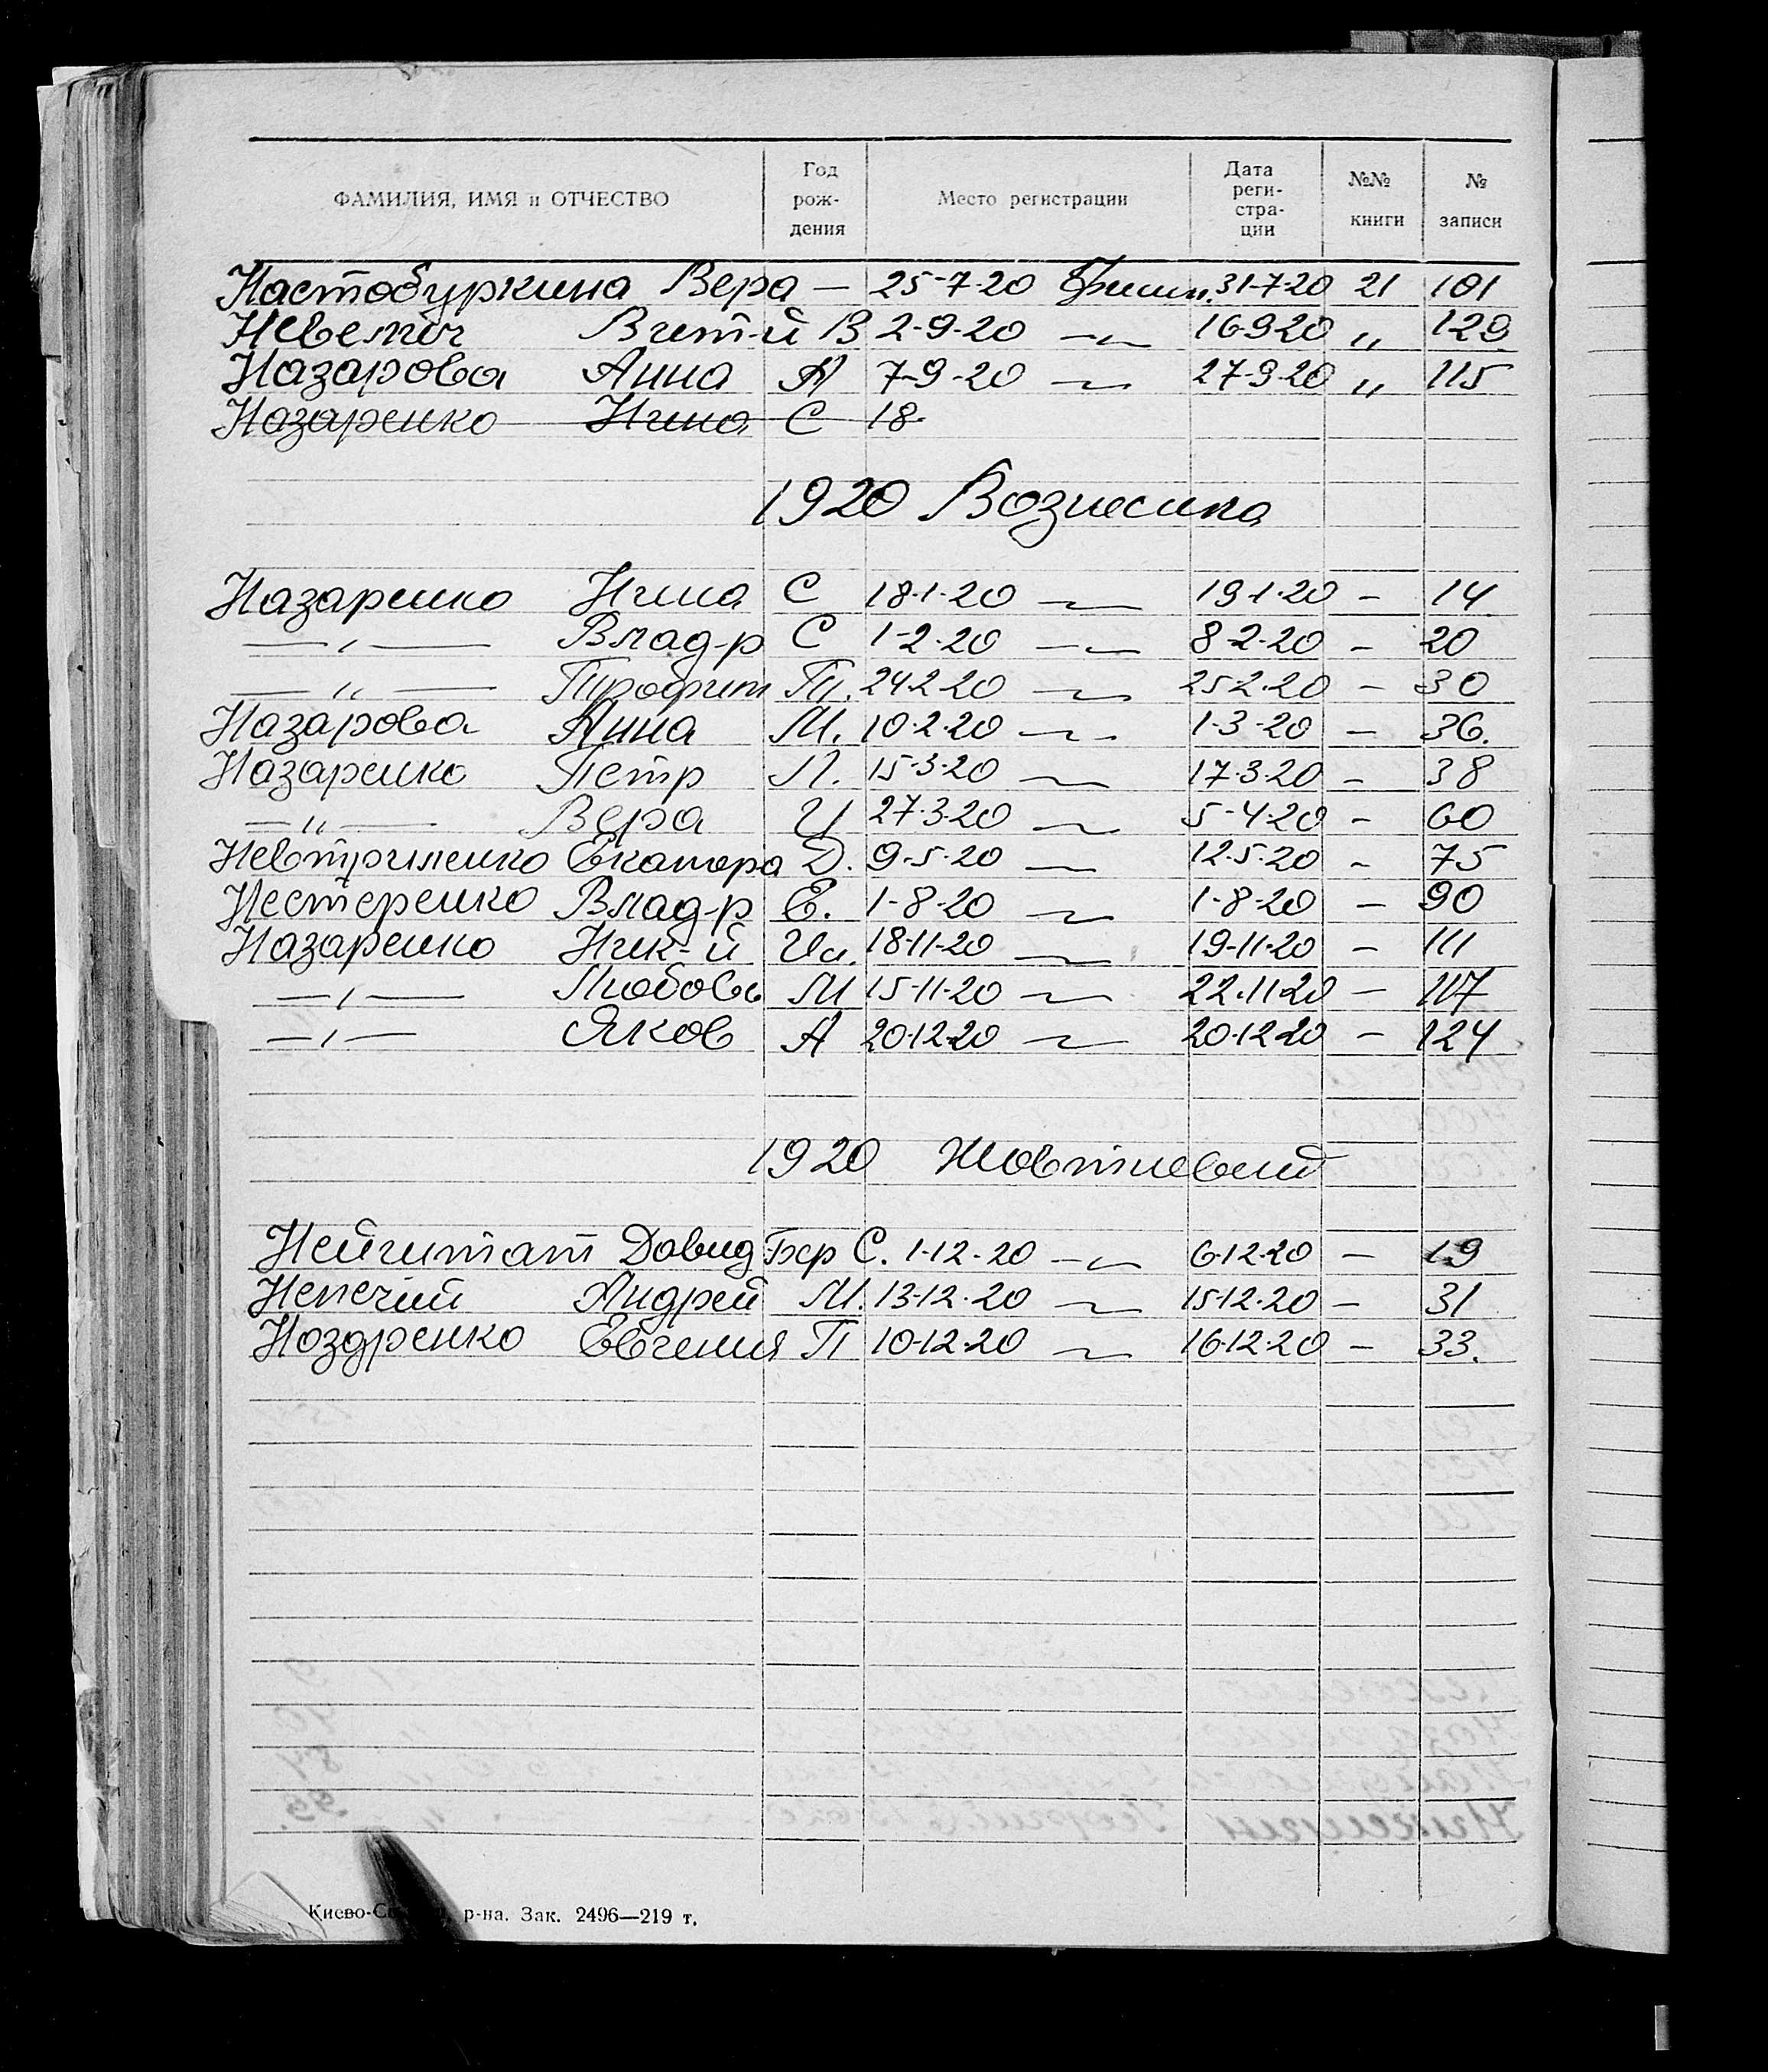 ФАМИЛИЯ, ИМЯ и ОТЧЕСТВО
Год рож- дения
Место регистрации
Дата реги- стра- ции
№№ книги
№ записи
Настобуркина Вера — 25-7-20 31-7-20 21 101
В 2-9-20 —"— 16-9-20 „ 129
Назарова Анна А 7-9-20 —"— 27-9-20 „ 115
Назаренко Нина С 18.
1920 Вознесенка
Назаренко Нина С 18-1-20 —"— 19-1-20 – 14
—"— Влад-р С 1-2-20 —"— 8-2-20 – 20
—"— 24-2-20 —"— 25-2-20 – 30
Назарова Анна М. 10-2-20 —"— 1-3-20 – 36.
Назаренко Петр Л. 15-3-20 —"— 17-3-20 – 38
—"— Вера И 27-3-20 —"— 5-4-20 – 60
Екатера Д. 9-5-20 —"— 12-5-20 – 75
Нестеренко Влад-р Е. 1-8-20 —"— 1-8-20 – 90
Назаренко Ник-й Ил. 18-11-20 —"— 19-11-20 – 111
—"— Любовь М 15-11-20 —"— 22-11-20 – 117
—"— Яков А 20-12-20 —"— 20-12-20 – 124
1920
Давид Бер С. 1-12-20 —"— 6-12-20 – 19
Непечий Андрей М. 13-12-20 —"— 15-12-20 – 31
Ноздренко Евгения П 10-12-20 —"— 16-12-20 – 33.
р-на. Зак. 2496—219 т.